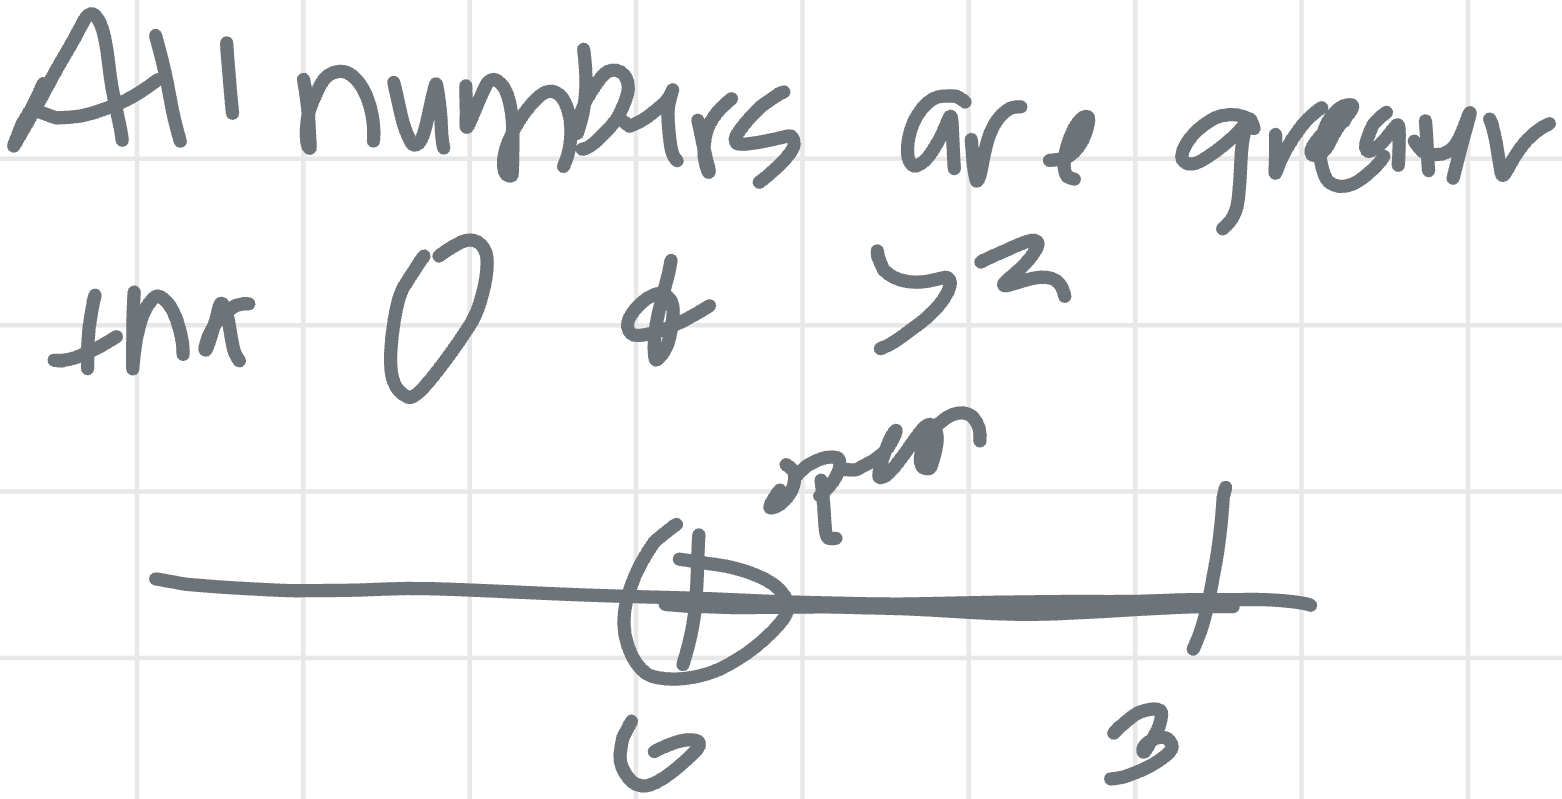 All numbers are greater
than 0 & >2
open
0 3